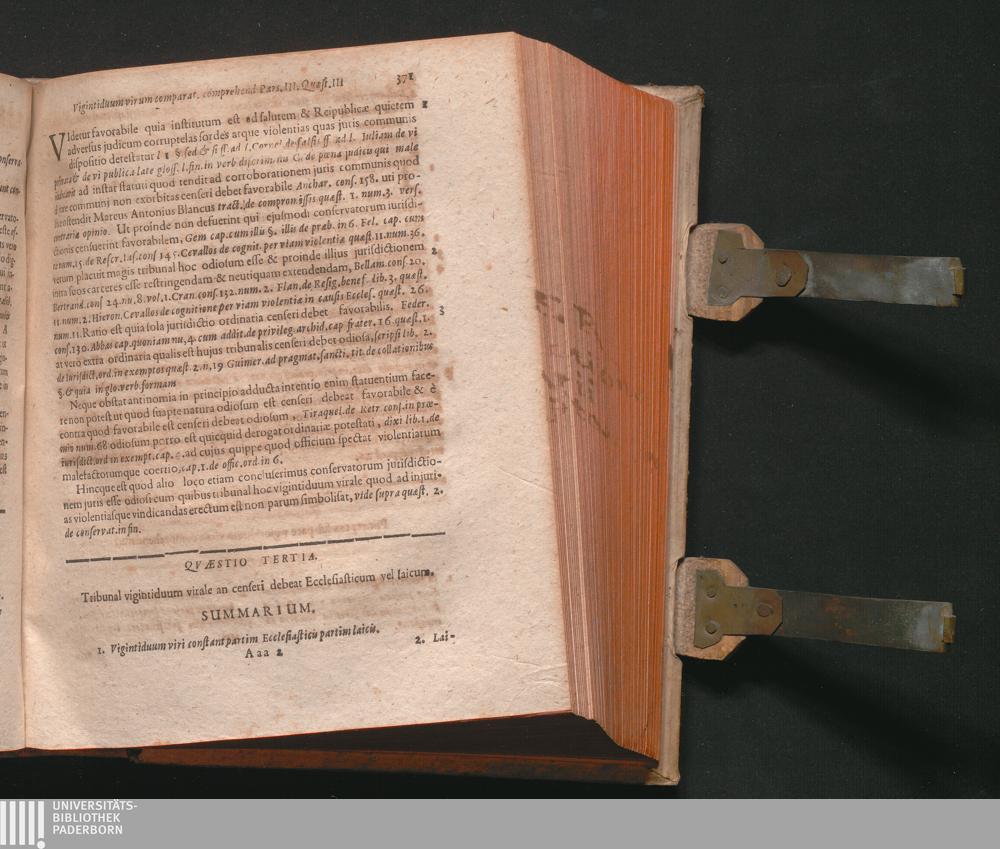 Vigintiduum virum comparat. comprehend Pars. III. Quæst. III 371
VIdetur favorabile quia institutum est ad salutem & Reipublicæ quietem 1
adversus judicum corruptelas sordes atque violentias quas juris communis
dispositio detestatur l 1 §. sed & si ff. ad l. Cornel de falsis ff. ad l. Iuliam de vi
& de vi publica late gloss. l. fin. in verb C. de pœna judicis qui male
ad instar statuti quod tendit ad corroborationem juris communis quod
communi non exorbitans censeri debet favorabile Anchar. cons. 158. uti pro-
ostendit Marcus Antonius Blancus tract. de compromissis quæst. 1. num. 3. vers.
contraria opinio. Ut proinde non defuerint qui ejusmodi conservatorum jurisdi-
ctionis censuerint favorabilem, Gem cap. cum illis §. illis de præb. in 6. Fel. cap. cum
num. 15 de Rescr. Ias. cons 145. Cevallos de cognit. per viam violentiæ quæst. 11. num. 36.
verum placuit magis tribunal hoc odiosum esse & proinde illius jurisdictionem 2
intra suos carceres esse restringendam & neutiquam extendendam, Bellam. cons. 20.
Bertrand. cons 24. nu. 8. vol. 1. Cran. cons. 132. num. 2. Flan. de Resig. benef. lib. 3. quæst.
11 num. 2. Hieron. Cevallos de cognitione per viam violentiæ in causis Eccles. quæst. 26.
num. 11. Ratio est quia sola jurisdictio ordinaria censeri debet favorabilis. Feder. 3
cons. 130. Abbas cap. quoniam nu, 4. cum addit. de privileg. archid. cap frater. 16 quæst. 1.
at vero extra ordinaria qualis est hujus tribunalis censeri debet odiosa, scripsi lib. 2.
de Iurisdict. ord. in exemptos quæst. 2. n. 19 Guimer. ad pragmat. sancti. tit. de collationibus
§. & quia in glo. verb. formam
Neque obstat antinomia in principio adducta intentio enim statuentium face-
re non potest ut quod suapte natura odiosum est censeri debeat favorabile & è
contra quod favorabile est censeri debeat odiosum, Tiraquel. de Retr conj. in præ-
mio num. 68 odiosum porro est quicquid derogat ordinariæ potestati, dixi lib. 1. de
iurisdict. ord in exempt. cap. ad cujus quippe quod officium spectat violentiarum
malefactorumque coertio, cap. 1. de offic. ord. in 6.
Hincque est quod alio loco etiam conclusèrimus conservatorum jurisdictio-
nem juris esse odiosi cum quibus tribunal hoc vigintiduum virale quod ad injuri-
as violentiasque vindicandas erectum est non parum simbolisat, vide supra quæst. 2.
de conservat. in fin.
QVÆSTIO TERTIA.
Tribunal vigintiduum virale an censeri debeat Ecclesiasticum vel laicum.
SUMMARIUM.
1. Vigintiduum viri constant partim Ecclesiasticis partim laicis.
2. Lai-
Aaa 2
UNIVERSITÄTS-
BIBLIOTHEK
PADERBORN